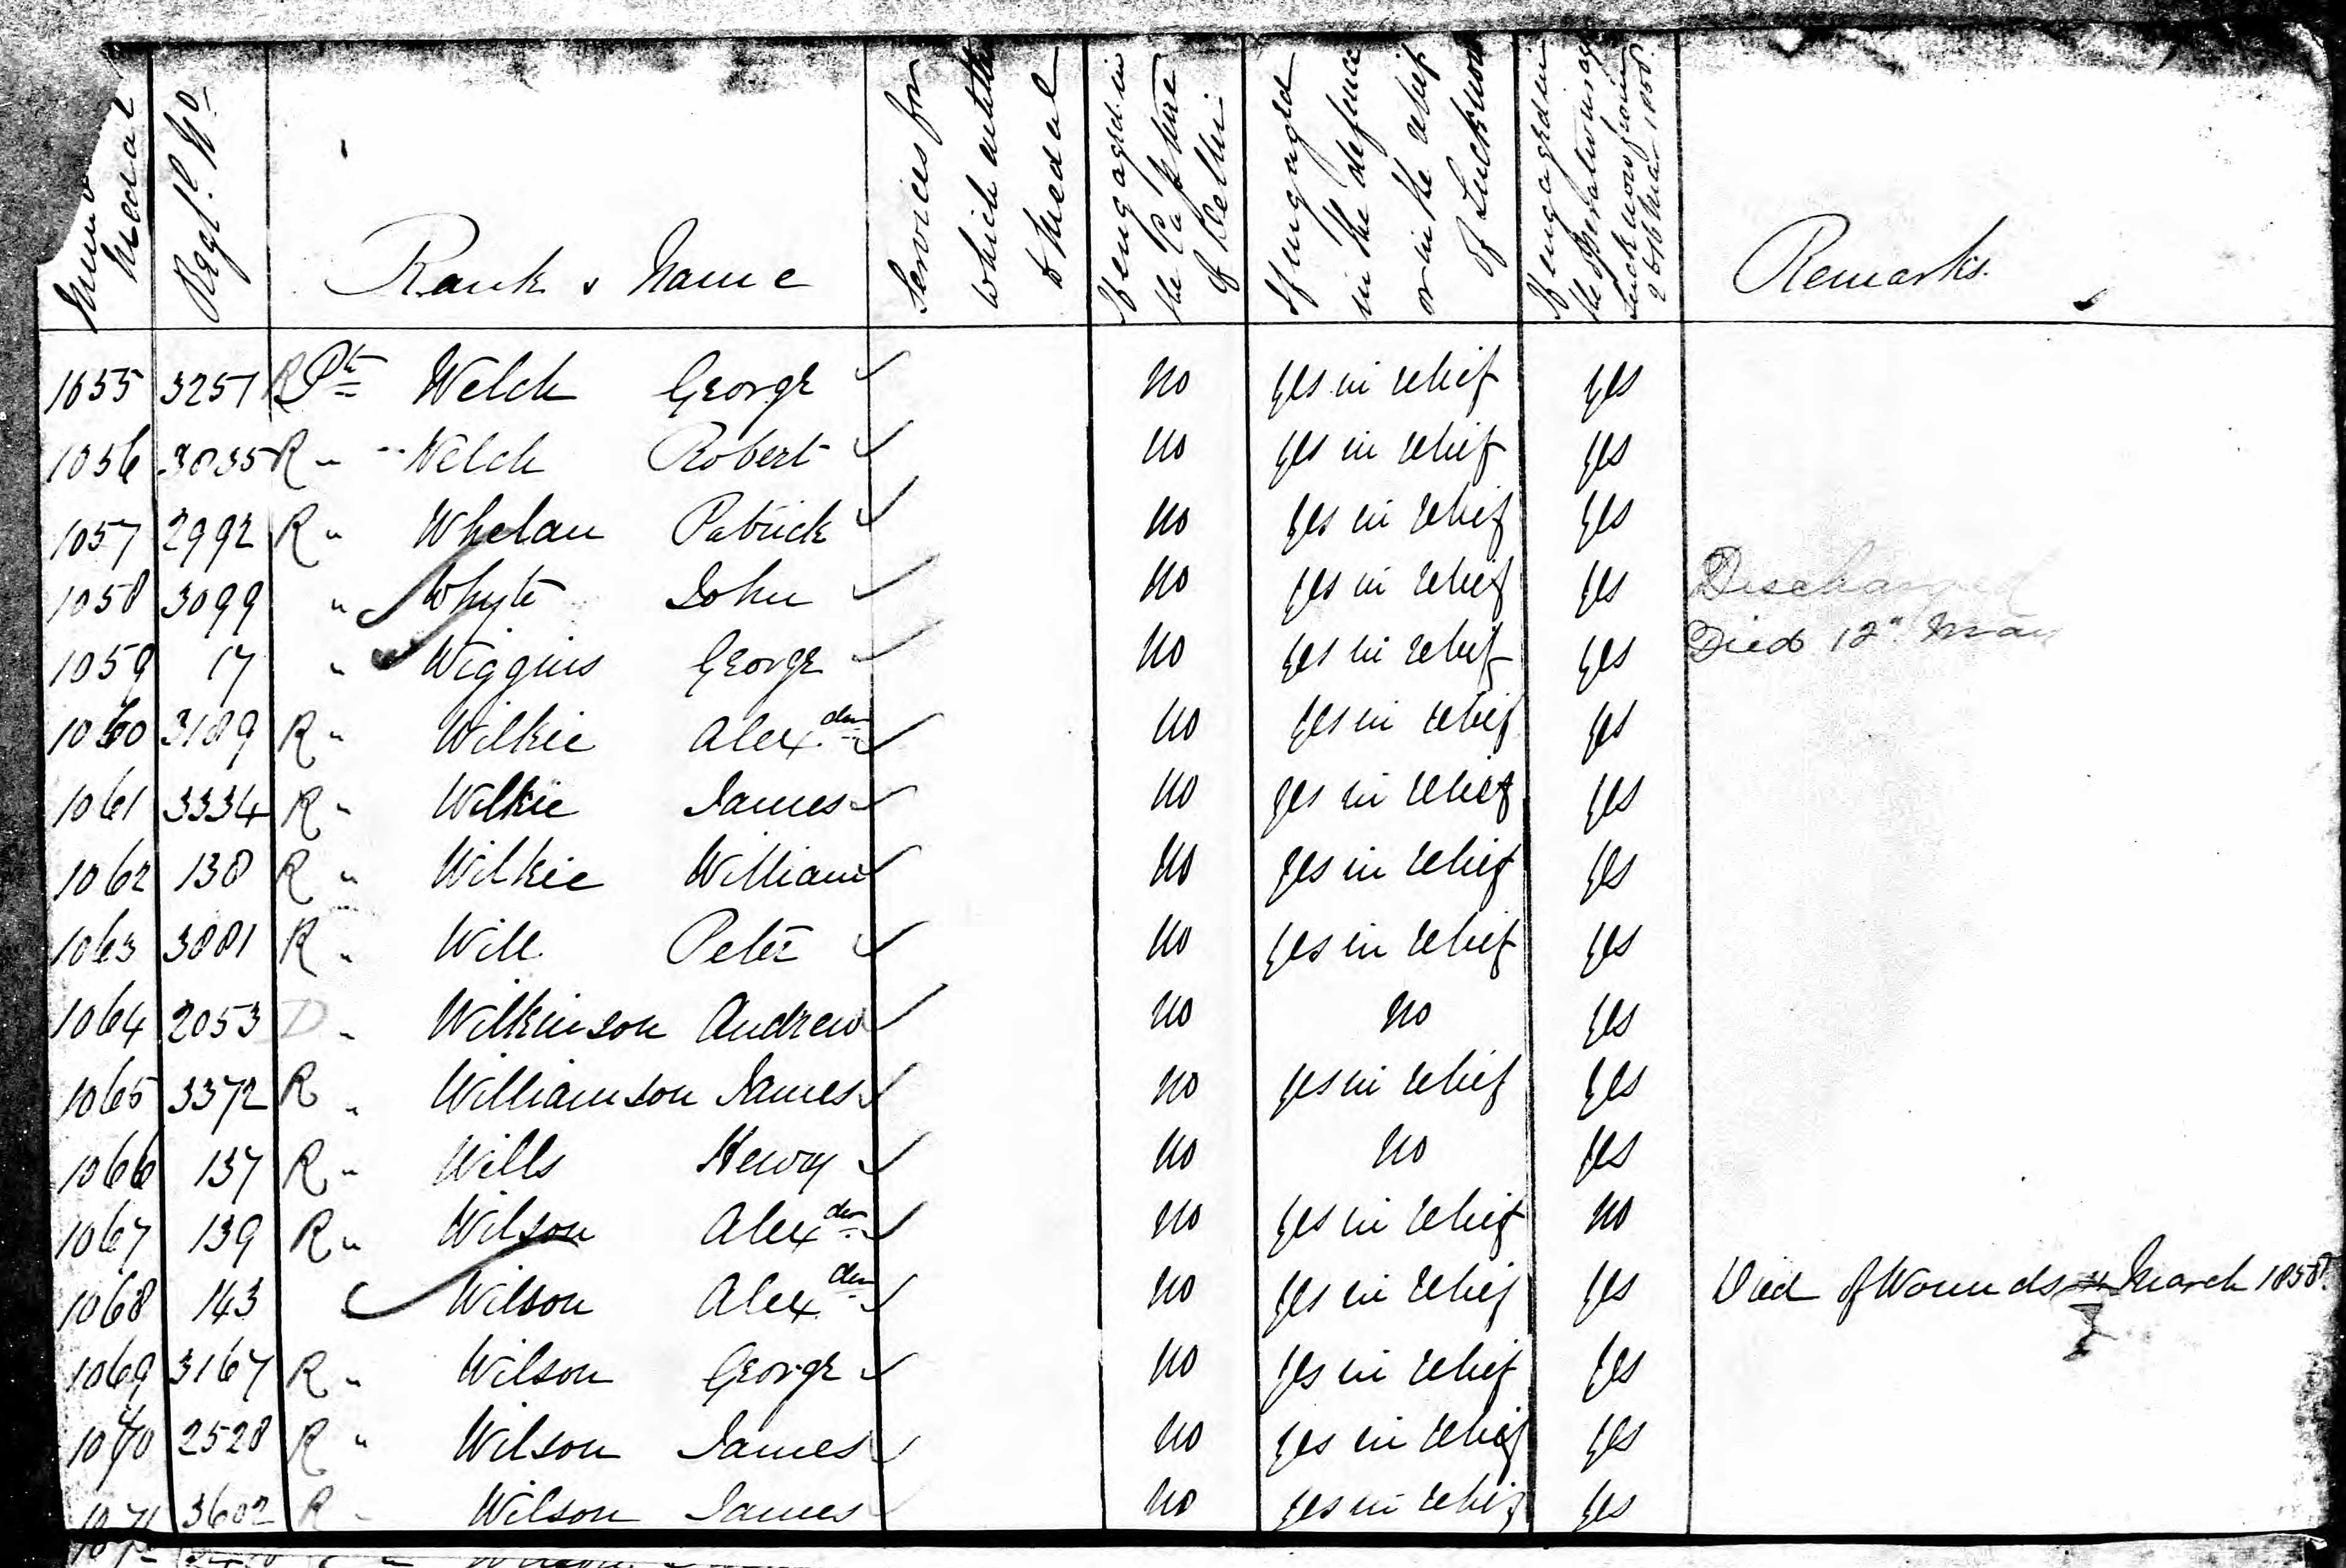 Medal
Regl. No
Rank & Name
Services for which entitled to Medal
If engaged in the Capture of Delhi
If engaged in the defence or in the relief of Lucknow
If engaged in the Operations against Lucknow from 2 to 16 Mar 1858.
Remarks.
1055 3257 R Pte Welch George no yes in relief yes
1056 3035 R " Welch Robert no yes in relief yes
1057 2992 R " Whelan Patrick no yes in relief yes
1058 3099 " Whyte John no yes in relief yes Discharged
1059 17 " Wiggins George no yes in relief yes Died 12" May
1060 3189 R " Wilkie Alexder no yes in relief yes
1061 3334 R " Wilkie James no yes in relief yes
1062 138 R " Wilkie William no yes in relief yes
1063 3081 R " Will Peter no yes in relief yes
1064 2053 D " Wilkinson Andrew no no yes
1065 3372 R " Williamson James no yes in relief yes
1066 137 R " Wills Henry no no yes
1067 139 R " Wilson Alexder no yes in relief no
1068 143 Wilson Alexder no yes in relief yes Died of Wounds March 1858.
1069 3167 R " Wilson George no yes in relief yes
1070 2528 R " Wilson James no yes in relief yes
1071 3602 R " Wilson James no yes in relief yes